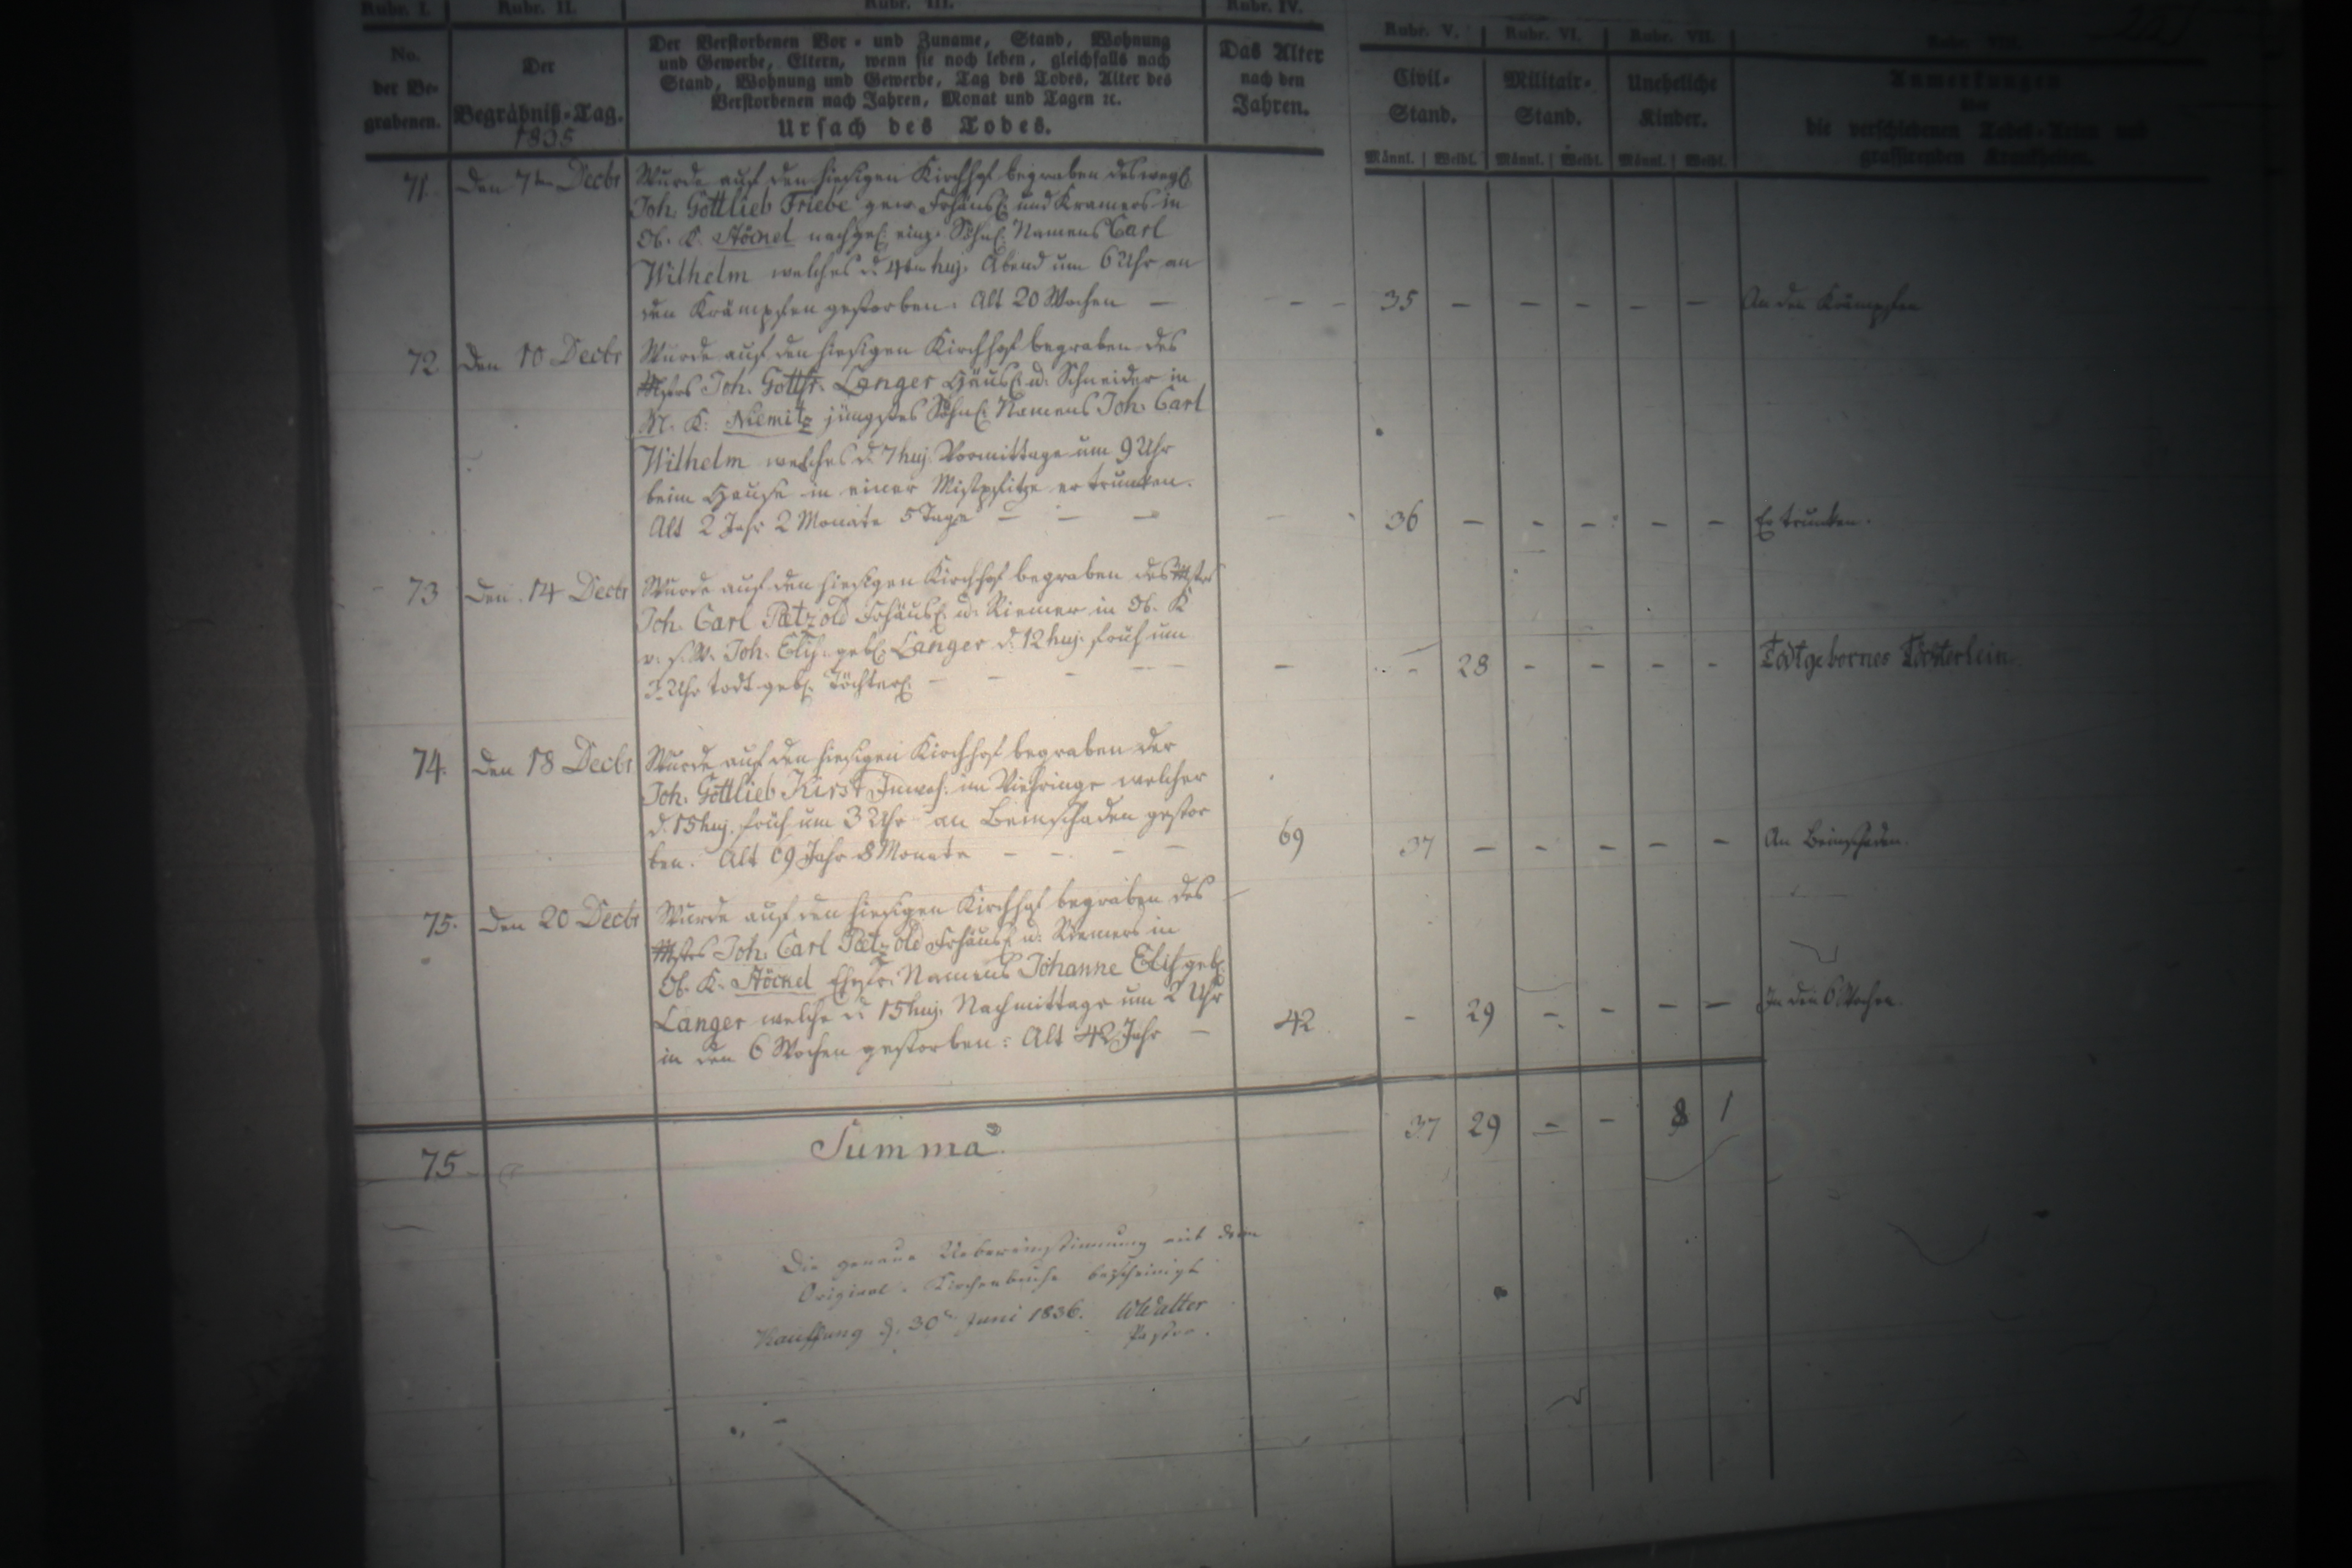 Rubr. I. Rubr. II. Rubr. III. Rubr. IV. Rubr. V. Rubr. VI. Rubr. VII.
No. der Begrabenen.
Der Begräbniß-Tag.
1835
Der Verstorbenen Vor- und Zuname, Stand, Wohnung
und Gewerbe, Eltern, wenn sie noch leben, gleichfalls nach
Stand, Wohnung und Gewerbe, Tag des Todes, Alter des
Verstorbenen nach Jahren, Monat und Tagen ꝛc.
Ursach des Todes.
Das Alter
nach den
Jahren.
Civil-
Stand.
Militair-
Stand.
Uneheliche
Kinder.
Anmerkungen
über
die verschiedenen Todes-Arten und
grassirenden Krankheiten.
Männl. Weibl. Männl. Weibl. Männl. Weibl.
71. den 7ten Decbr Wurde auf den hiesigen Kirchhof begraben des
Joh. Gottlieb Friebe gew. Frhäusl. und Kramers in
Ob. K. Stöckel nachgel. einz. Söhnl. Namens Carl
Wilhelm welches d. 4ten huj. Abend um 6 Uhr an
den Krämpfen gestorben. Alt 20 Wochen — - - 35 - - - - - An den Krämpfen
72. den 10 Decbr Wurde auf den hiesigen Kirchhof begraben des
Mstrs Joh. Gottfr. Langer Häusl. u. Schneider in
M. K. Niemitz jüngstes Söhnl. Namens Joh. Carl
Wilhelm welches d. 7 huj. Vormittage um 9 Uhr
beim Hause in einer Mistpfütze ertrunken.
Alt 2 Jahr 2 Monate 5 Tage - - - - 36 - - - - - Ertrunken.
73 den 14 Decbr Wurde auf den hiesigen Kirchhof begraben des Mstrs
Joh. Carl Pätzold Frhäusl. u. Riemer in Ob. K
v. s. W. Joh. Elis. geb. Langer d. 12 huj. früh um
3 Uhr todt geb. Töchterl. - - - - - - 28 - - - - Todtgebornes Töchterlein
74. den 18 Decbr Wurde auf den hiesigen Kirchhof begraben der
Joh. Gottlieb Kirst Inwoh. im Viehringe welcher
d. 15 huj. früh um 3 Uhr an Beinschaden gestor
ben. Alt 69 Jahr 8 Monate - - - - 69 37 - - - - - An Beinschaden.
75. den 20 Decbr Wurde auf den hiesigen Kirchhof begraben des
Mstrs Joh. Carl Pätzold Frhäusl. u. Riemers in
Ob. K. Stöckel Namens Johanne Elis. geb.
Langer welche d. 15 huj. Nachmittage um 2 Uhr
in den 6 Wochen gestorben: Alt 42 Jahr - 42 - 29 - - - - In den 6 Wochen.
75 Summa. 37 29 - - 8 1
Die genaue Uebereinstimmung mit dem
Original-Kirchenbuche bescheinigt
Kauffung d. 30n Juni 1836. Walter
Pastor.